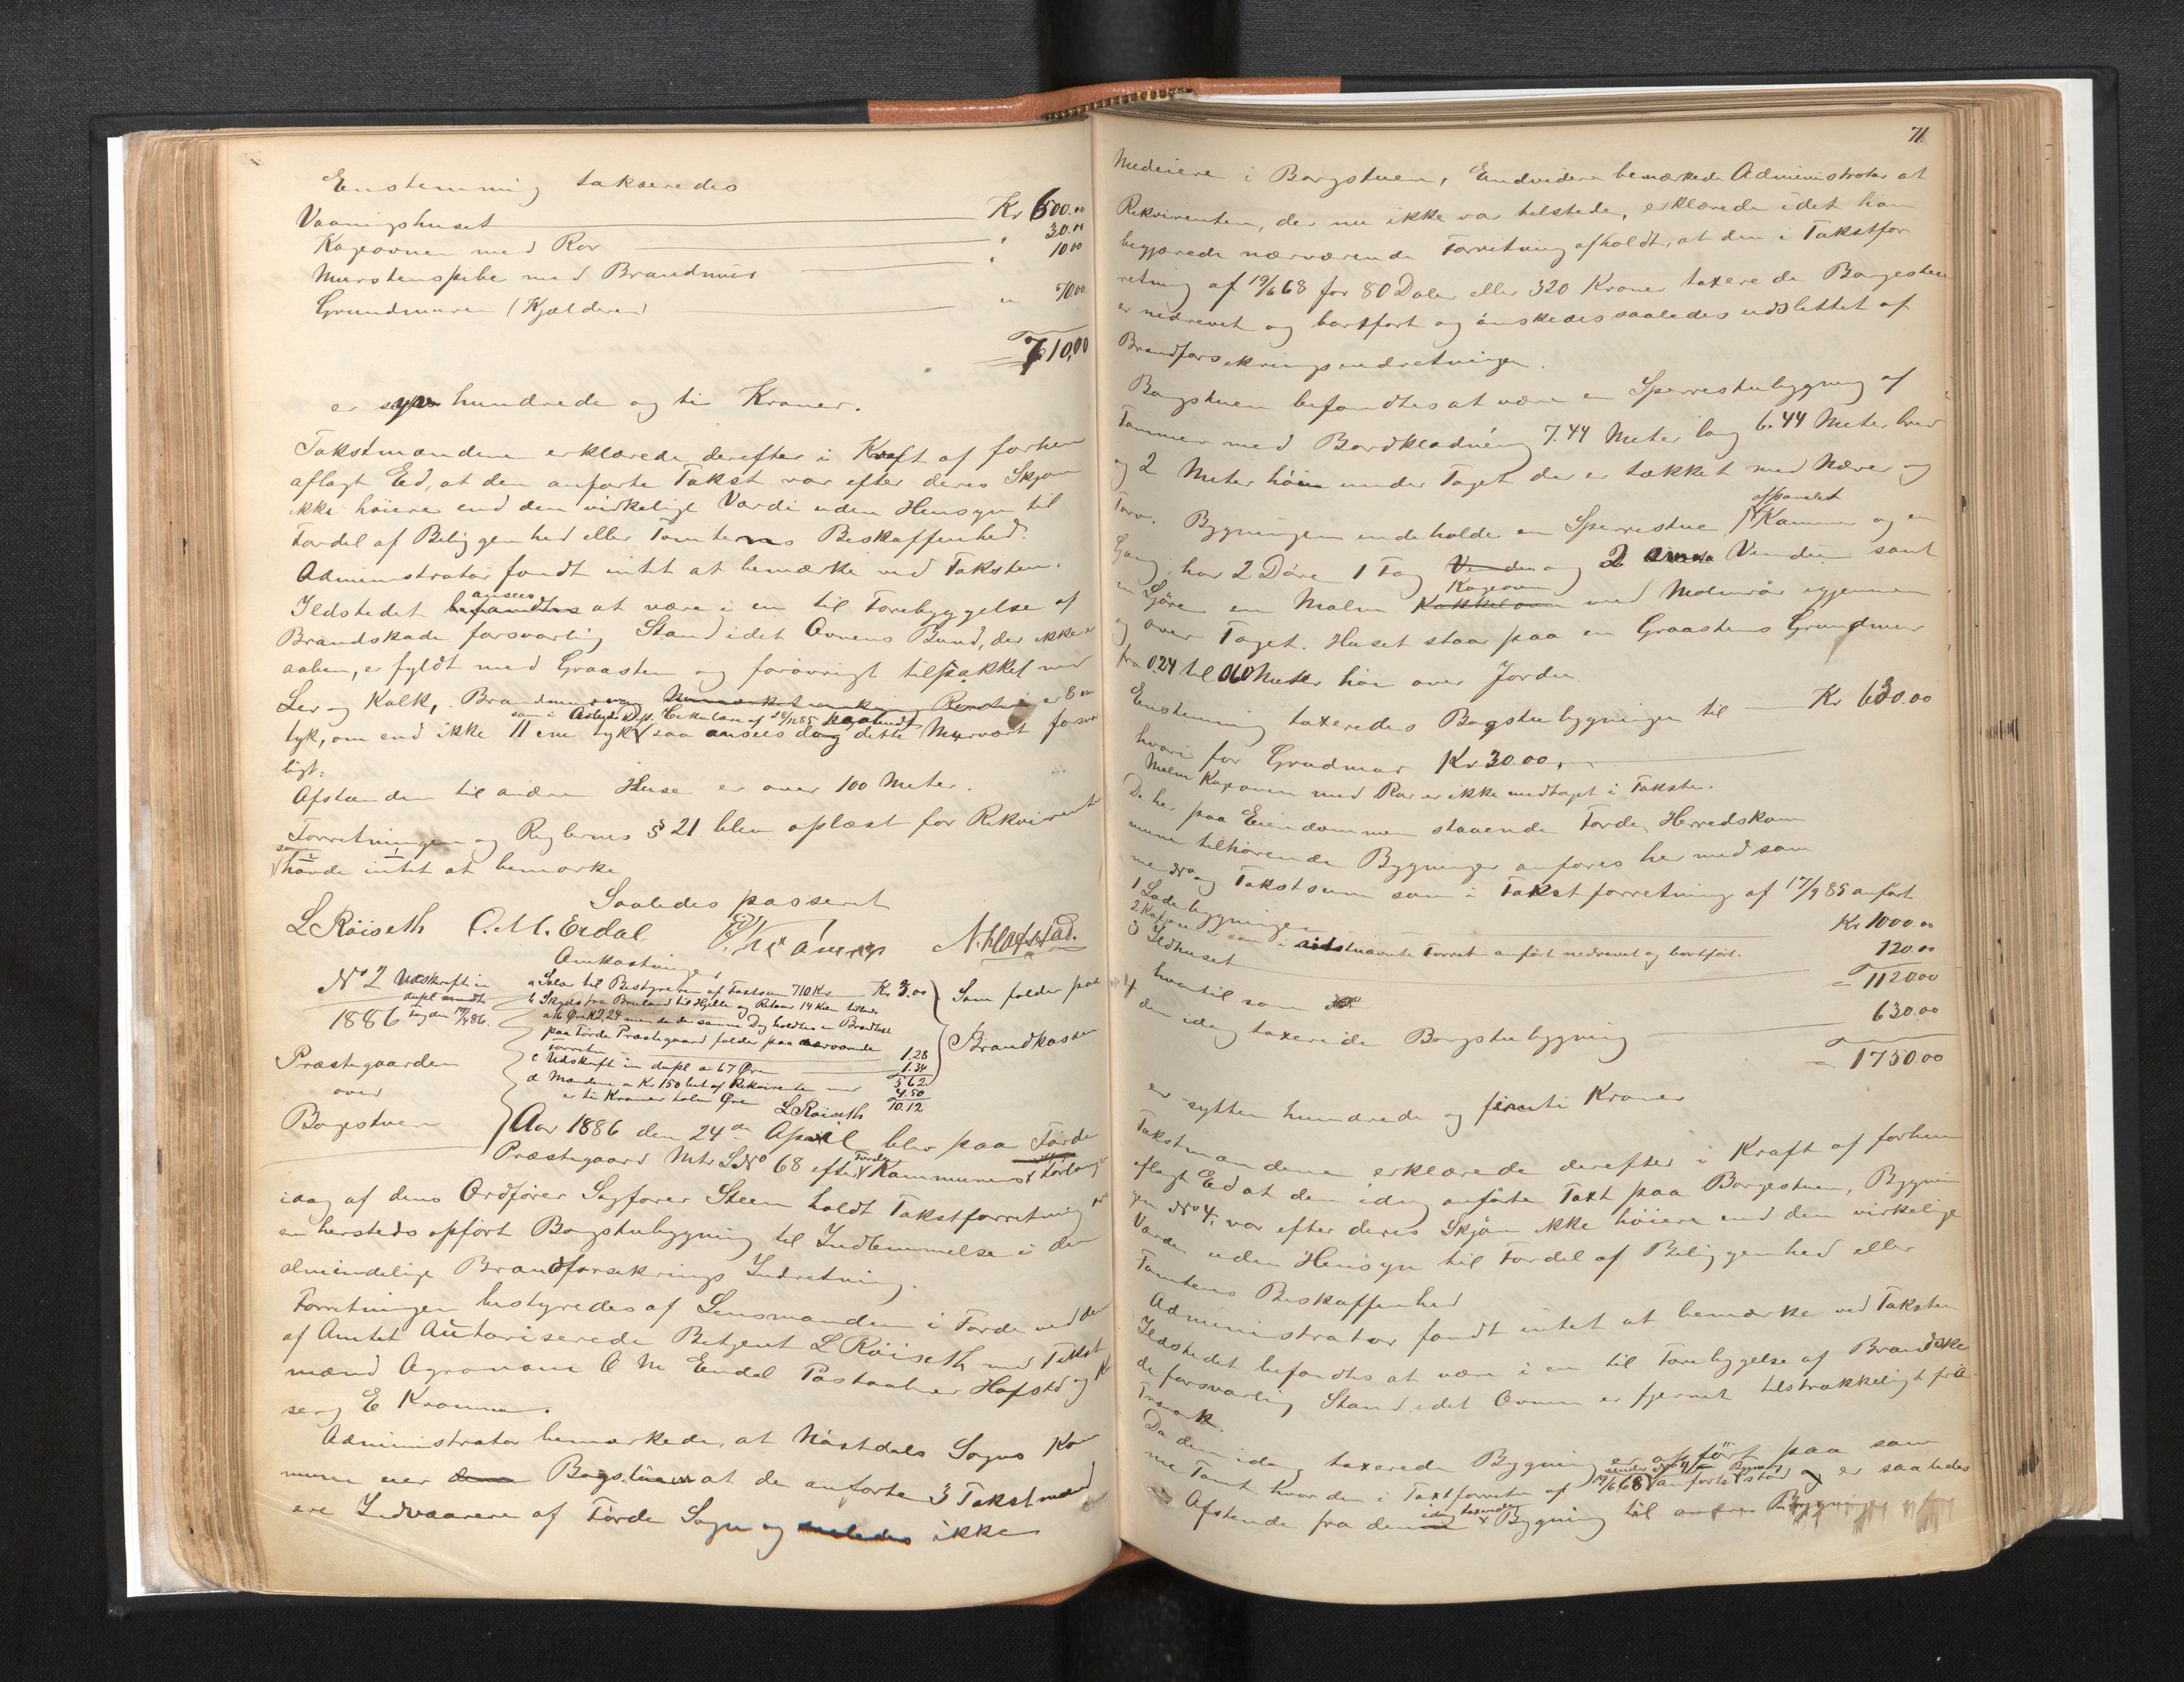 Enstemmig takseredes
Vaaningshuset Kr 600.00
Kogeovnen med Rør " 30.00
Murstenspibe med Brandmur " 10.00
Grundmuren (Kjælderen) " 70.00
= 710,00
er syv hundrede og ti Kroner.
Takstmændene erklærede derefter i Kraft af forhen
aflagt Eed, at den anførte Takst var efter deres Skjøn
ikke høiere end den virkelige Værdi uden Hensyn til
Fordel af Beliggenhed eller Tomtens Beskaffenhed.
Administrator fandt intet at bemærke ved Taksten.
Ildstedet ansees at være i en til Forebyggelse af
Brandskade forsvarlig Stand idet Ovnens Bund, der ikke er
aaben, er fyldt med Graasten og forøvrigt tilpakket med
Ler og Kalk, Brandmuren er 8 cm
tyk, om end ikke 11 cm tyk som i Arbeids Dep. Cirkulære af paabudt saa ansees dog dette Murværk forsvar
ligt.
Afstanden til andre Huse er over 100 Meter.
Forretningen og Reglernes § 21 blev oplæst for Rekvirenten
som havde intet at bemærke
Saaledes passeret
L Röiseth O. M. Erdal. E Kramer N. Hafstad.
Omkostninger
No 2 Udskrift in
dupl sendt
1886
a Salær til Bestyreren af Taxtsum 710 Kr Kr 3.00
b Skyds fra Bruland til Hjelle og Retour 14 Km tilsats
a 16 Øre K 2,24 men da der samme Dag holdtes en Brandtaxt
paa Førde Præstegaard falder paa nærværende
Forretn 1.28
c Udskrift in dupl a 67 Øre 1.34
5.62
d Mændene a Kr 1.50 bet af Rekvirenten med 4.50
er ti Kroner tolv Øre 10.12
L Röiseth
Som falder paa
Brandkassen
Præstegaarden
over
Borgestuen
Aar 1886 den 24de April blev paa Førde
Præstegaard Mtr LNo 68 efter Førde Kommunes Forlang
idag af dens Ordfører Sagfører Steen holdt Takstforretning over
en hersteds opført Borgstubygning til Indlemmelse i den
almindelige Brandforsikrings Indretning.
Forretningen bestyredes af Lensmanden i Førde ved den
af Amtet Autoriserede Betjent L Röiseth med Takst
mænd Agronom O M Erdal Postaabner Hafstad og
E Kramer.
Administrator bemærkede, at Nöstdals Sogns Kom
mune eier Borgstuen at de anførte 3 Takstmænd
ere Indvaanere af Førde Sogn og ikke
71
Medeiere i Borgstuen, Endvidere bemærkede Administrator at
Rekvirenten, der nu ikke var tilstede, erklærede idet han
begjærede nærværende Forretning afholdt, at den i Takstfor
retning af 19/6 68 for 80 Daler eller 320 Kroner taxerede Borgestue
er nedrevet og bortført og ønskedes saaledes udslettet af
Brandforsikringsindretningen.
Borgstuen befandtes at være en Sperrestubygning af
Tømmer med Bordklædning 7.44 Meter lang 6.44 Meter bred
og 2 Meter høi under Taget der er tækket med Næver og
Torv. Bygningen indeholder en Sperrestue 1 afpanelet Kammer og en
Gang, har 2 Døre 1 Fag og 2 Vinduer samt
en Malm Kogeovn med Malmrør igjennem
og over Taget. Huset staar paa en Graastens Grundmur
fra 0.24 til 0.60 Meter høi over Jorden.
Enstemmig taxeredes Borgstubygningen til Kr 630.00
hvori for Grundmur Kr 30.00,
Malm Kogeovnen med Rør er ikke medtaget i Taksten.
De her paa Eiendommen staaende Førde, Herredskom
mune tilhørende Bygninger anføres her med sam
me No og Takstsum som i Takstforretning af 17/9 85 anført
1 Ladebygningen Kr 1000.00
2 som i sidstnævnte Forretn anført nedrevet og bortført.
3 Ildhuset 120.00
= 1120.00
hvortil som No 4
den idag taxerede Borgstubygning 630.00
= 1750.00
er sytten hundrede og femti Kroner
Takstmændene erklærede derefter i Kraft af forhen
aflagt Eed at den idag anførte Taxt paa Borgestuen, Bygnin
gen No 4, var efter deres Skjøn ikke høiere end den virkelige
Værdi uden Hensyn til Fordel af Beliggenhed eller
Tomtens Beskaffenhed
Administrator fandt intet at bemærke ved Taksten
Ildstedet befandtes at være i en til Forebyggelse af Brandska
de forsvarlig Stand idet Ovnen er fjernet tilstrækkeligt fra
Træværk.
Da den idag taxerede Bygning er opført paa sam
me Tomt hvor den i Taxtforretn af 19/6 68 under No 4 anførte Bygning stod og er saaledes
Afstande fra den idag taxerede Bygning til andre Bygninger